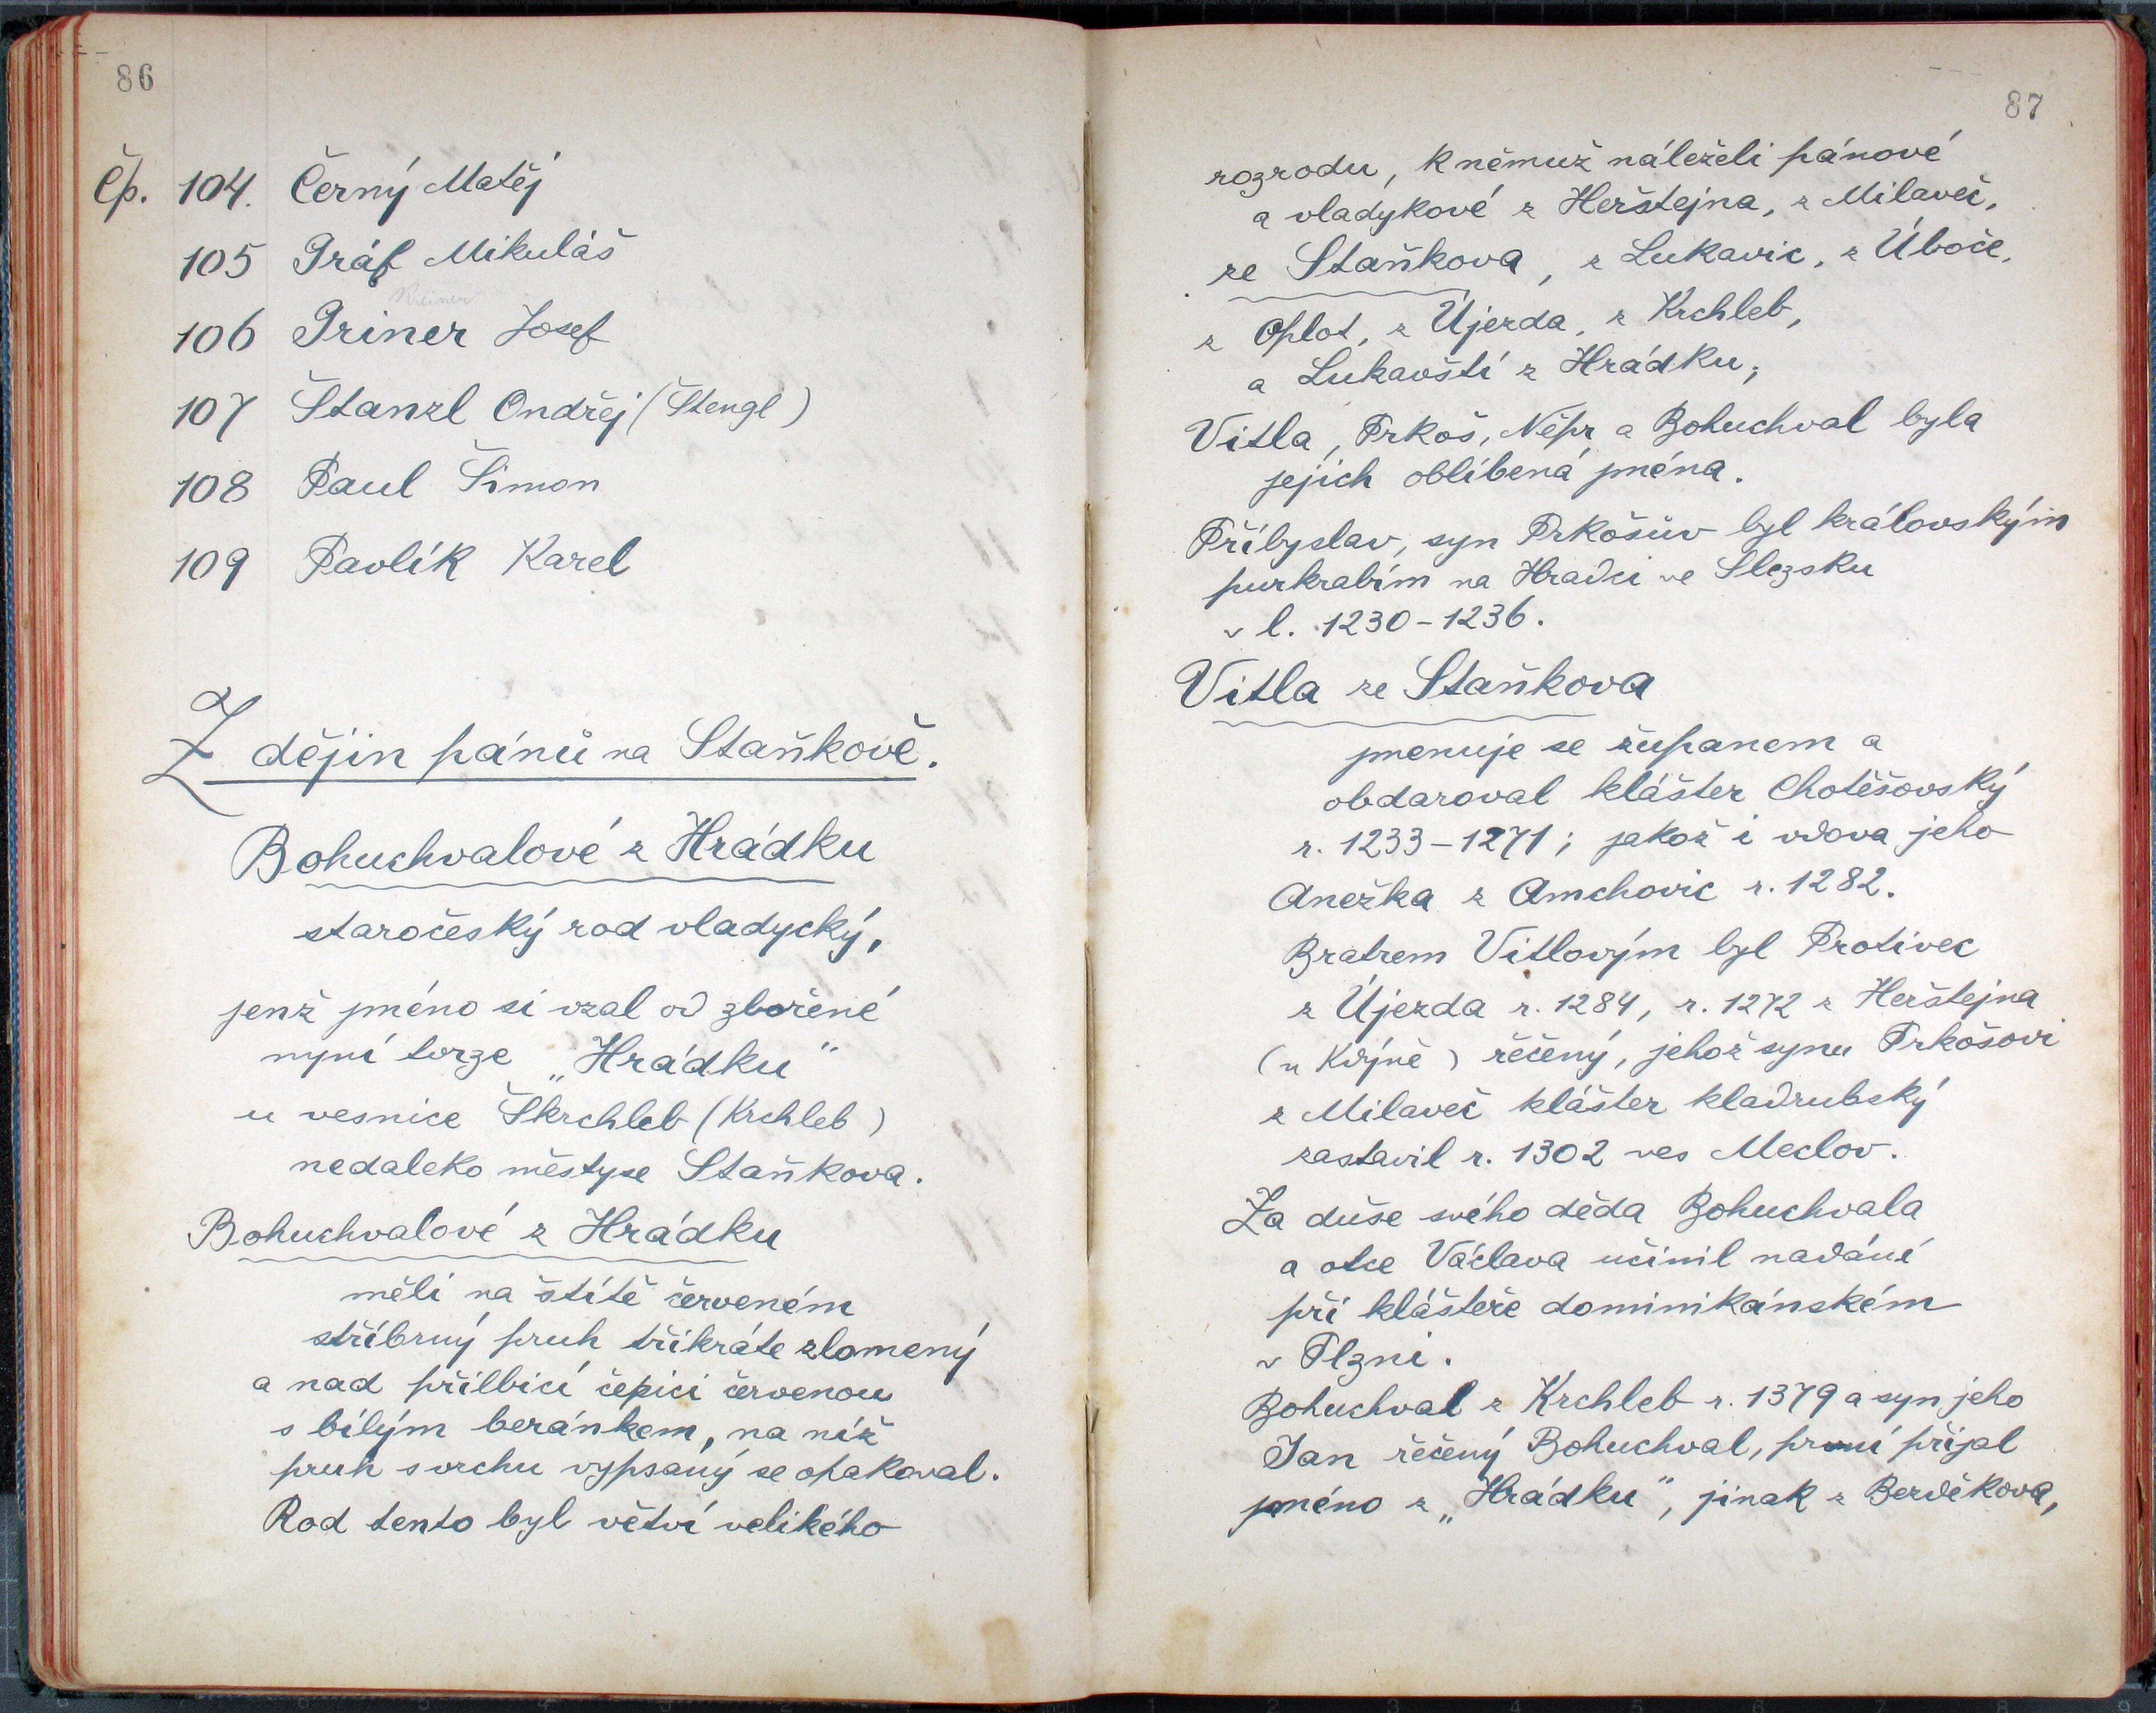 86
Čp. 104. Černý Matěj
105 Gráf Mikuláš
Kreiner
106 Griner Josef
107 Štanzl Ondřej (Štengl)
108 Paul Šimon
109 Pavlík Karel
Z dějin pánů na Staňkově.
Bohuchvalové z Hrádku
staročeský rod vladycký,
jenž jméno si vzal od zbořené
nyní tvrze „Hrádku"
u vesnice Škrchleb (Krchleb)
nedaleko městyse Staňkova.
Bohuchvalové z Hrádku
měli na štítě červeném
stříbrný pruh třikráte zlomený
a nad přilbicí čepici červenou
s bílým beránkem, na níž
pruh svrchu vypsaný se opakoval.
Rod tento byl větví velikého
87
rozrodu, k němuž náleželi pánové
a vladykové z Herštejna, z Milaveč,
ze Staňkova, z Lukavic, z Úboče,
z Oplot, z Újezda, z Krchleb,
a Lukavští z Hrádku;
Vitla, Prkoš, Něpr a Bohuchval byla
jejich oblíbená jména.
Přibyslav, syn Prkošův byl královským
purkrabím na Hradci ve Slezsku
v l. 1230-1236.
Vitla ze Staňkova
jmenuje se županem a
obdaroval klášter Chotěšovský
r. 1233-1271; jakož i vdova jeho
Anežka z Amchovic r. 1282.
Bratrem Vitlovým byl Protivec
z Újezda r. 1284, r. 1272 z Herštejna
(u Kdýně) řečený, jehož synu Prkošovi
z Milaveč klášter kladrubský
zastavil r. 1302 ves Meclov.
Za duše svého děda Bohuchvala
a otce Václava učinil nadání
při klášteře dominikánském
v Plzni.
Bohuchval z Krchleb r. 1379 a syn jeho
Jan řečený Bohuchval, první přijal
jméno z „Hrádku", jinak z Berděkova,